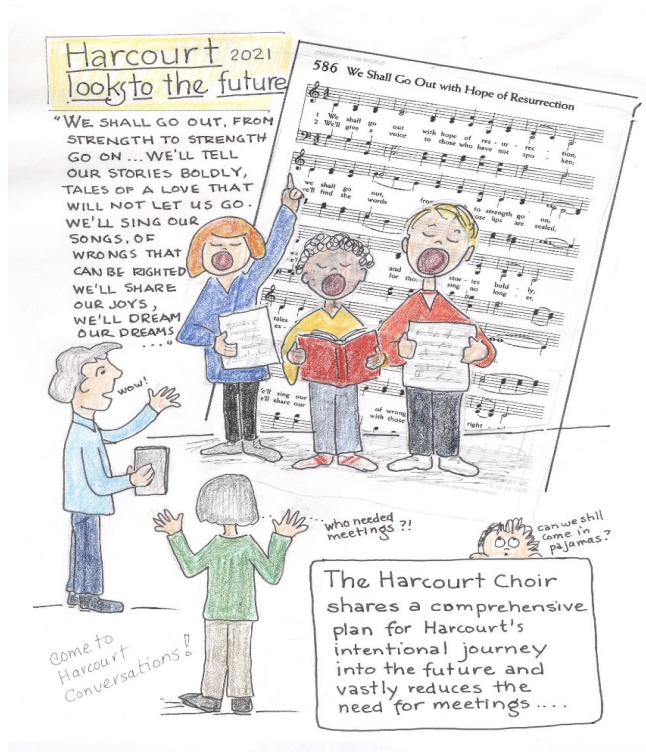 Harcourt 2021
looks to the future
"WE SHALL GO OUT, FROM
STRENGTH TO STRENGTH
GO ON... WE'LL TELL
OUR STORIES BOLDLY,
TALES OF A LOVE THAT
WILL NOT LET US GO.
WE'LL SING OUR
SONGS, OF
WRONGS THAT
CAN BE RIGHTED
WE'LL SHARE
OUR JOYS,
WE'LL DREAM
OUR DREAMS
...."
CHURCH IN THE WORLD
586 We Shall Go Out with Hope of Resurrection
1 We shall go out with hope of res - ur - rec - tion;
2 We'll give a voice to those who have not spo - ken;
we shall go out, to strength go on;
we'll find the words lips are sealed,
and stor - ies bold - ly,
for sing no long - er,
tales
ex -
we'll sing our of wrong right
we'll share our with those
wow!
who needed
meetings?!
can we still
come in
pajamas?
come to
Harcourt
Conversations!
The Harcourt Choir
shares a comprehensive
plan for Harcourt's
intentional journey
into the future and
vastly reduces the
need for meetings....